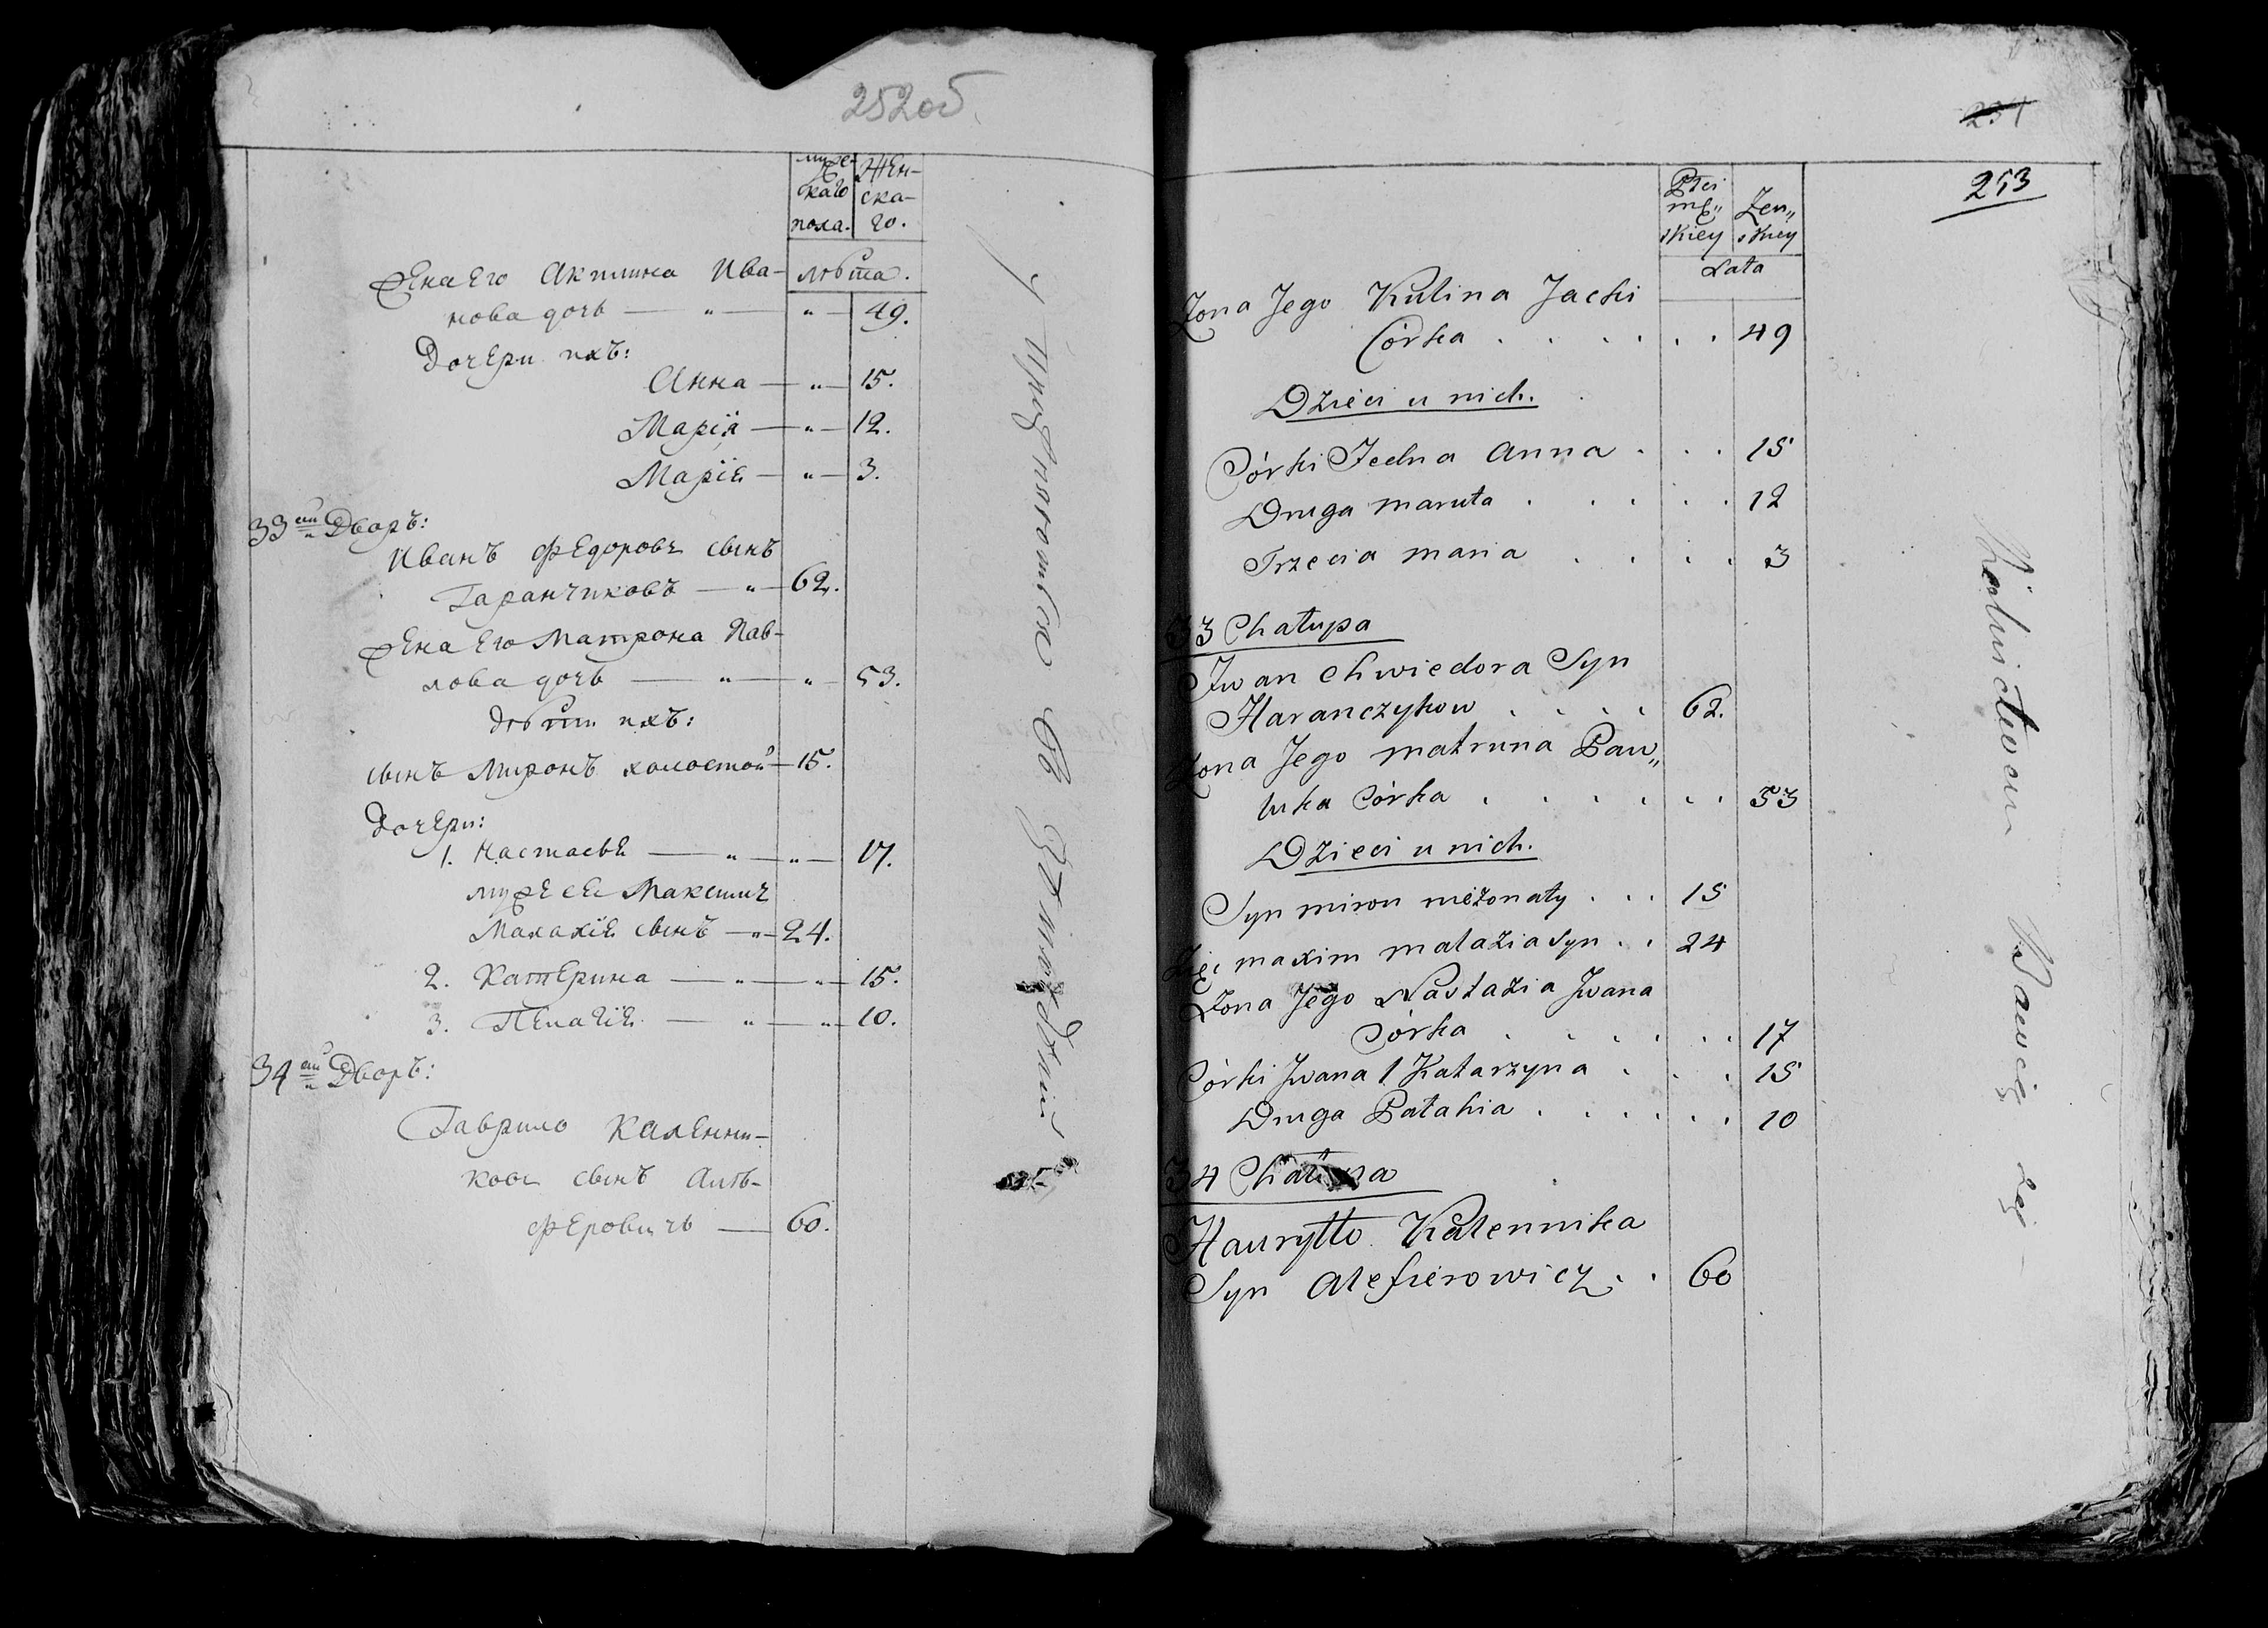 252об.
муже-
скаго
пола.
Жен-
ска-
го.
лѣта.
Жена Его Акилина Ива-
нова дочь — " — " — 49.
Дочери ихъ:
Анна — " — 15.
Марія — " — 12.
Марія — " — 3.
33й Дворъ:
Иванъ Федоровъ сынъ
Гаранчиковъ — " — 62.
Жена Его Матрона Пав-
лова дочь — " — " — 53.
Дѣти ихъ:
сынъ Миронъ холостой — 15.
Дочери:
1. Настасья — " — " — 17.
мужъ ее Максимъ
Малахіи сынъ — " — 24.
2. Катерина — " — " — 15.
3. Пелагія — " — " — 10.
34й Дворъ:
Гаврило Каленни-
ковъ сынъ Алѣ-
феровичъ — 60.
251
253
Płci
mę"
skiey
Żeń"
skiey
Lata
Żona Jego Kulina Jacki
Córka . . . . . . 49
Dzieci u nich.
Córki Jedna Anna . . . 15
Druga Maruta . . . . . 12
Trzecia Maria . . . . 3
33 Chałupa
Iwan Chwiedora Syn
Haranczykow . . . . 62.
Żona Jego Matruna Paw"
luka Córka . . . . . . 53
Dzieci u nich.
Syn Miron nieżonaty . . . 15
Zięc Maxim Malazia Syn . . 24
Żona Jego Nastazia Iwana
Córka . . . . . . 17
Córki Iwana 1 Katarzyna . . . 15
Druga Pałahia . . . . . . 10
34 Chałupa
Hauryłło Kalennika
Syn Alefierowicz . . 60